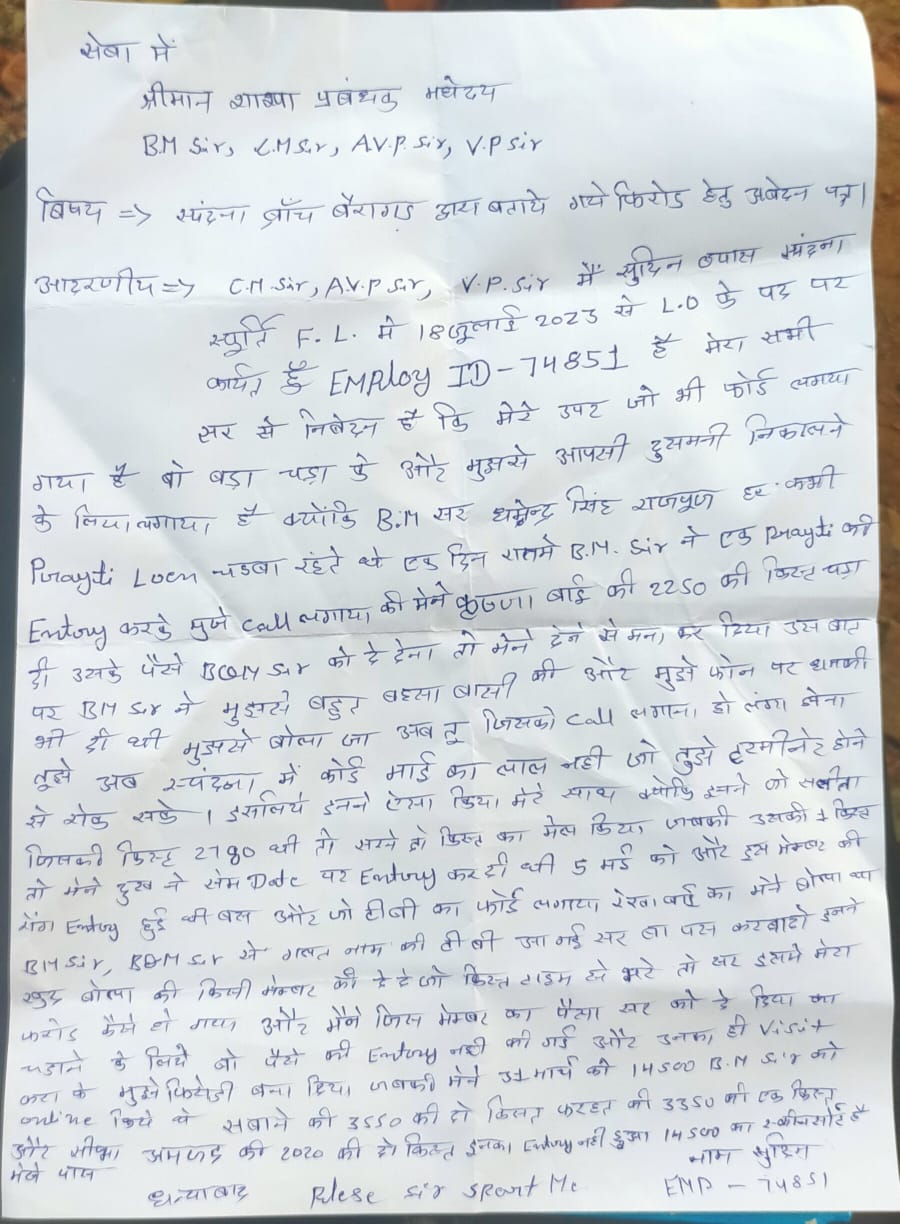 सेबा में
श्रीमान शाखा प्रबंधक महोदय
B.M Sir, C.M Sir, A.V.P. Sir, V.P Sir
बिषय => स्पंदना ब्रॉंच बैरागड द्वारा बताये गये फिरोड हेतु अबेदन पत्र।
आदरणीय => C.M. Sir, A.V.P Sir, V.P. Sir मैं सुदिन व्यास स्पंदना
स्फूर्ति F. L. मे 18 जुलाई 2023 से L.O के पद पर
कार्यत हूँ EMPloy ID - 74851 है मेरा सभी
सर से निबेदन है कि मेरे उपर जो भी फोर्ड लगाया
गया है बो बड़ा चड़ा के और मुझसे आपसी दुसमनी निकालने
के लिया लगाया है क्योंकि B.M सर धर्मेन्द्र सिंह राजपूज हर कभी
Prayti Loen चडबा रंहते थे एक दिन रातमे B.M. Sir ने एक Prayti की
Entory करके मुझे call लगाया की मेने कृष्णा बाई की 2250 की किस्त चड़ा
दी उसके पैसे BQM Sir को दे देना तो मेने देने से मना कर दिया उस बात
पर BM Sir ने मुझसे बहुत बहसा बासी की और मुझे फोन पर धमकी
भी दी थी मुझसे बोला जा अब तू जिसको call लगाना हो लगा लेना
तूझे अब स्पंदना में कोई माई का लाल नही जो तुझे टरमीनेट होने
से रोक सके। इसलिये इनने ऐसा किया मेरे साथ क्योकि इनने जो सबीता
जिसकी किस्त 2780 थी तो सरने दो किस्त का मेल किया जबकी उसकी 1 किस्त
तो मेने दुख ने सेम Date पर Entury कर दी थी 5 मई को और इस मेम्बर की
रोंग Entry हुई थी बस और जो टीबी का फोर्ड लगाया रेखा बाई का मेने बोला था
BM Sir, BQM Sir से गलत नाम की टीबी आ गई सर बापस करबादो इनने
खुद बोला की किसी मेम्बर को दे दे जो किस्त टाइम से भरे तो सर इसमे मेरा
फरोड कैसे हो गया और मैंने जिस मेम्बर का पैसा सर को दे दिया था
चडाने के लिये बो पैसे की Entry नही की गई और उनका ही Visit
करा के मुझे फिरोडी बना दिया जबकी मेने 31 मार्च को 14500 B.M Sir को
online किये थे सबाने की 3550 की दो किस्त फरहत की 3350 की एक किस्त
और सीमा अमजद की 2020 की दो किस्त इनका Entry नही हुआ 14500 का स्कीनसोर्ट है
मेरे पास नाम सुदिन
धन्याबाद Pelese Sir SPout Me EMP - 74851